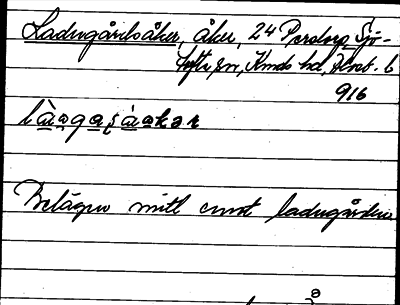 Ladugårdsåker, åker, 24 Persborg, Sjö-
tofta sn, Kinds hd, Älvsb. l
916
Belägen mitt emot ladugården